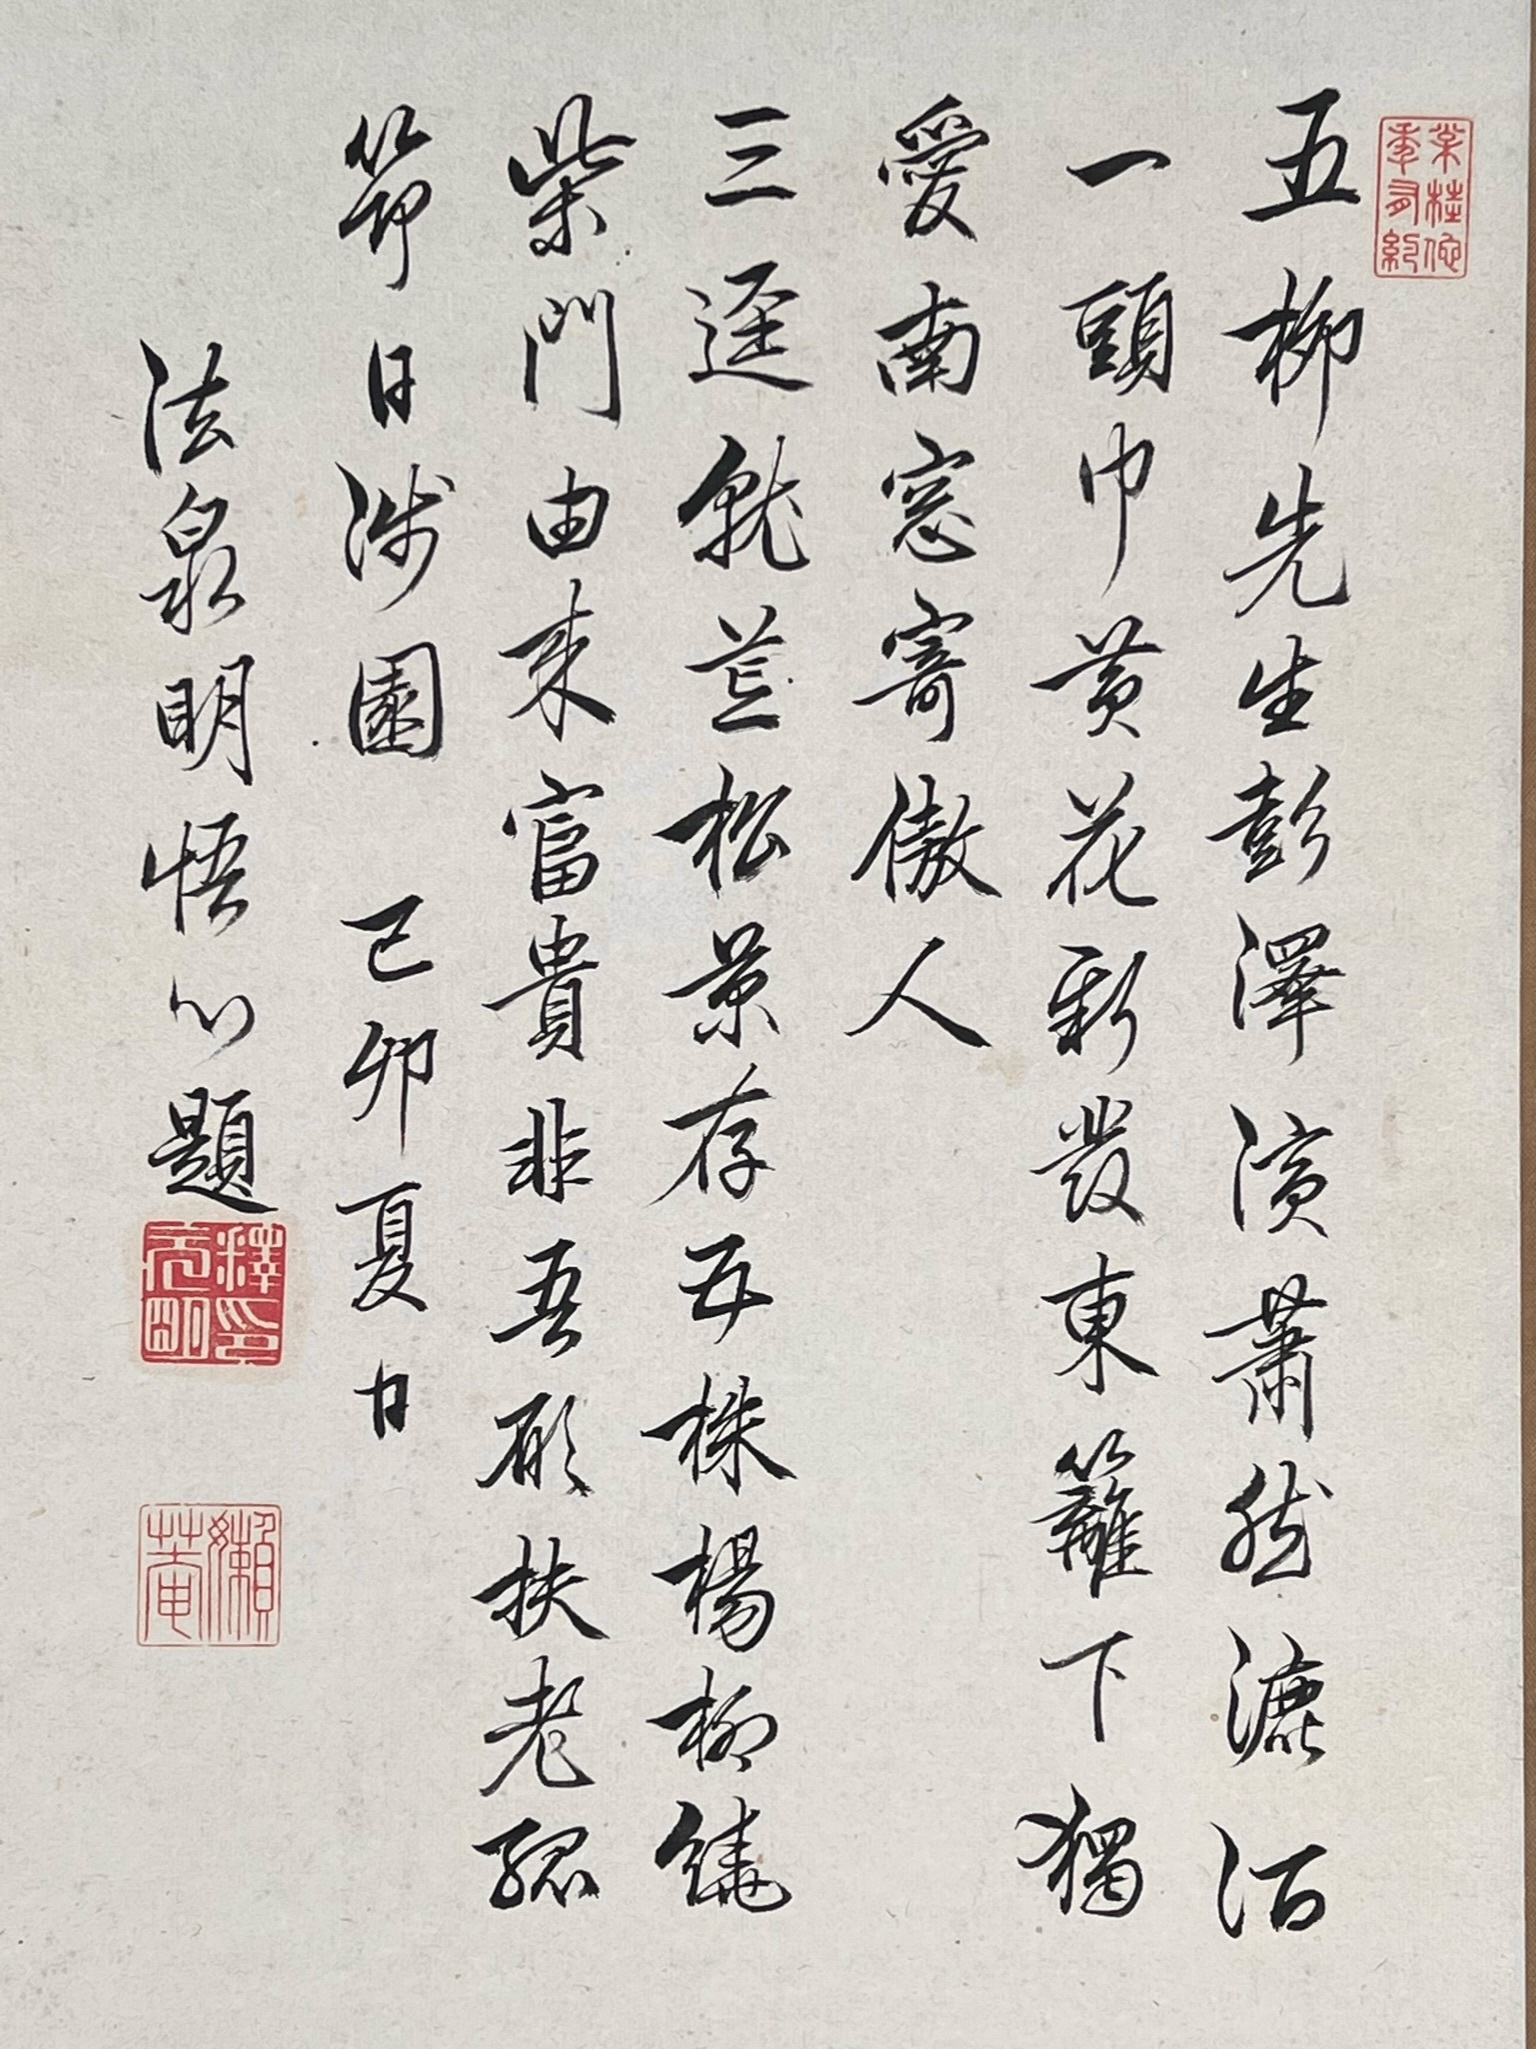 五柳先生彭澤濱蕭然漉酒
一頭巾黃花新發東籬下獨
愛南窓寄傲人
三逕就荒松菊存五株楊柳繞
柴門由来富貴非吾願扶老孤
筇日涉園 己卯夏日
法泉明悟心題
釋印元明
懶菴